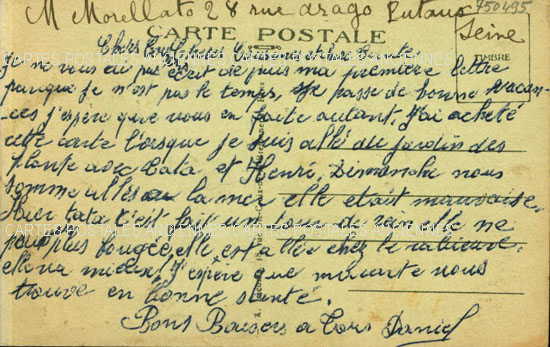 M Morellato 28 rue arago Puteaux
750495
Seine
CARTE POSTALE
TIMBRE
Chers
Je ne vous ai pas écrit depuis ma première lettre
parceque je n'est pas le temps, Je passe de bonne vacan-
ces j'espère que vous en faite autant. J'ai acheté
cette carte lorsque je suis allé au jardin des
plante avec tata et Henri, Dimanche nous
somme allés a la mer elle était mauvaise.
Hier tata c'est fait un tour de rein elle ne
peut plus bougée, elle est allée chez le
elle va mieux. J'espère que ma carte vous
trouve en bonne santé.
Bons Baisers a tous Daniel
CARTES POSTALES ANCIENNES